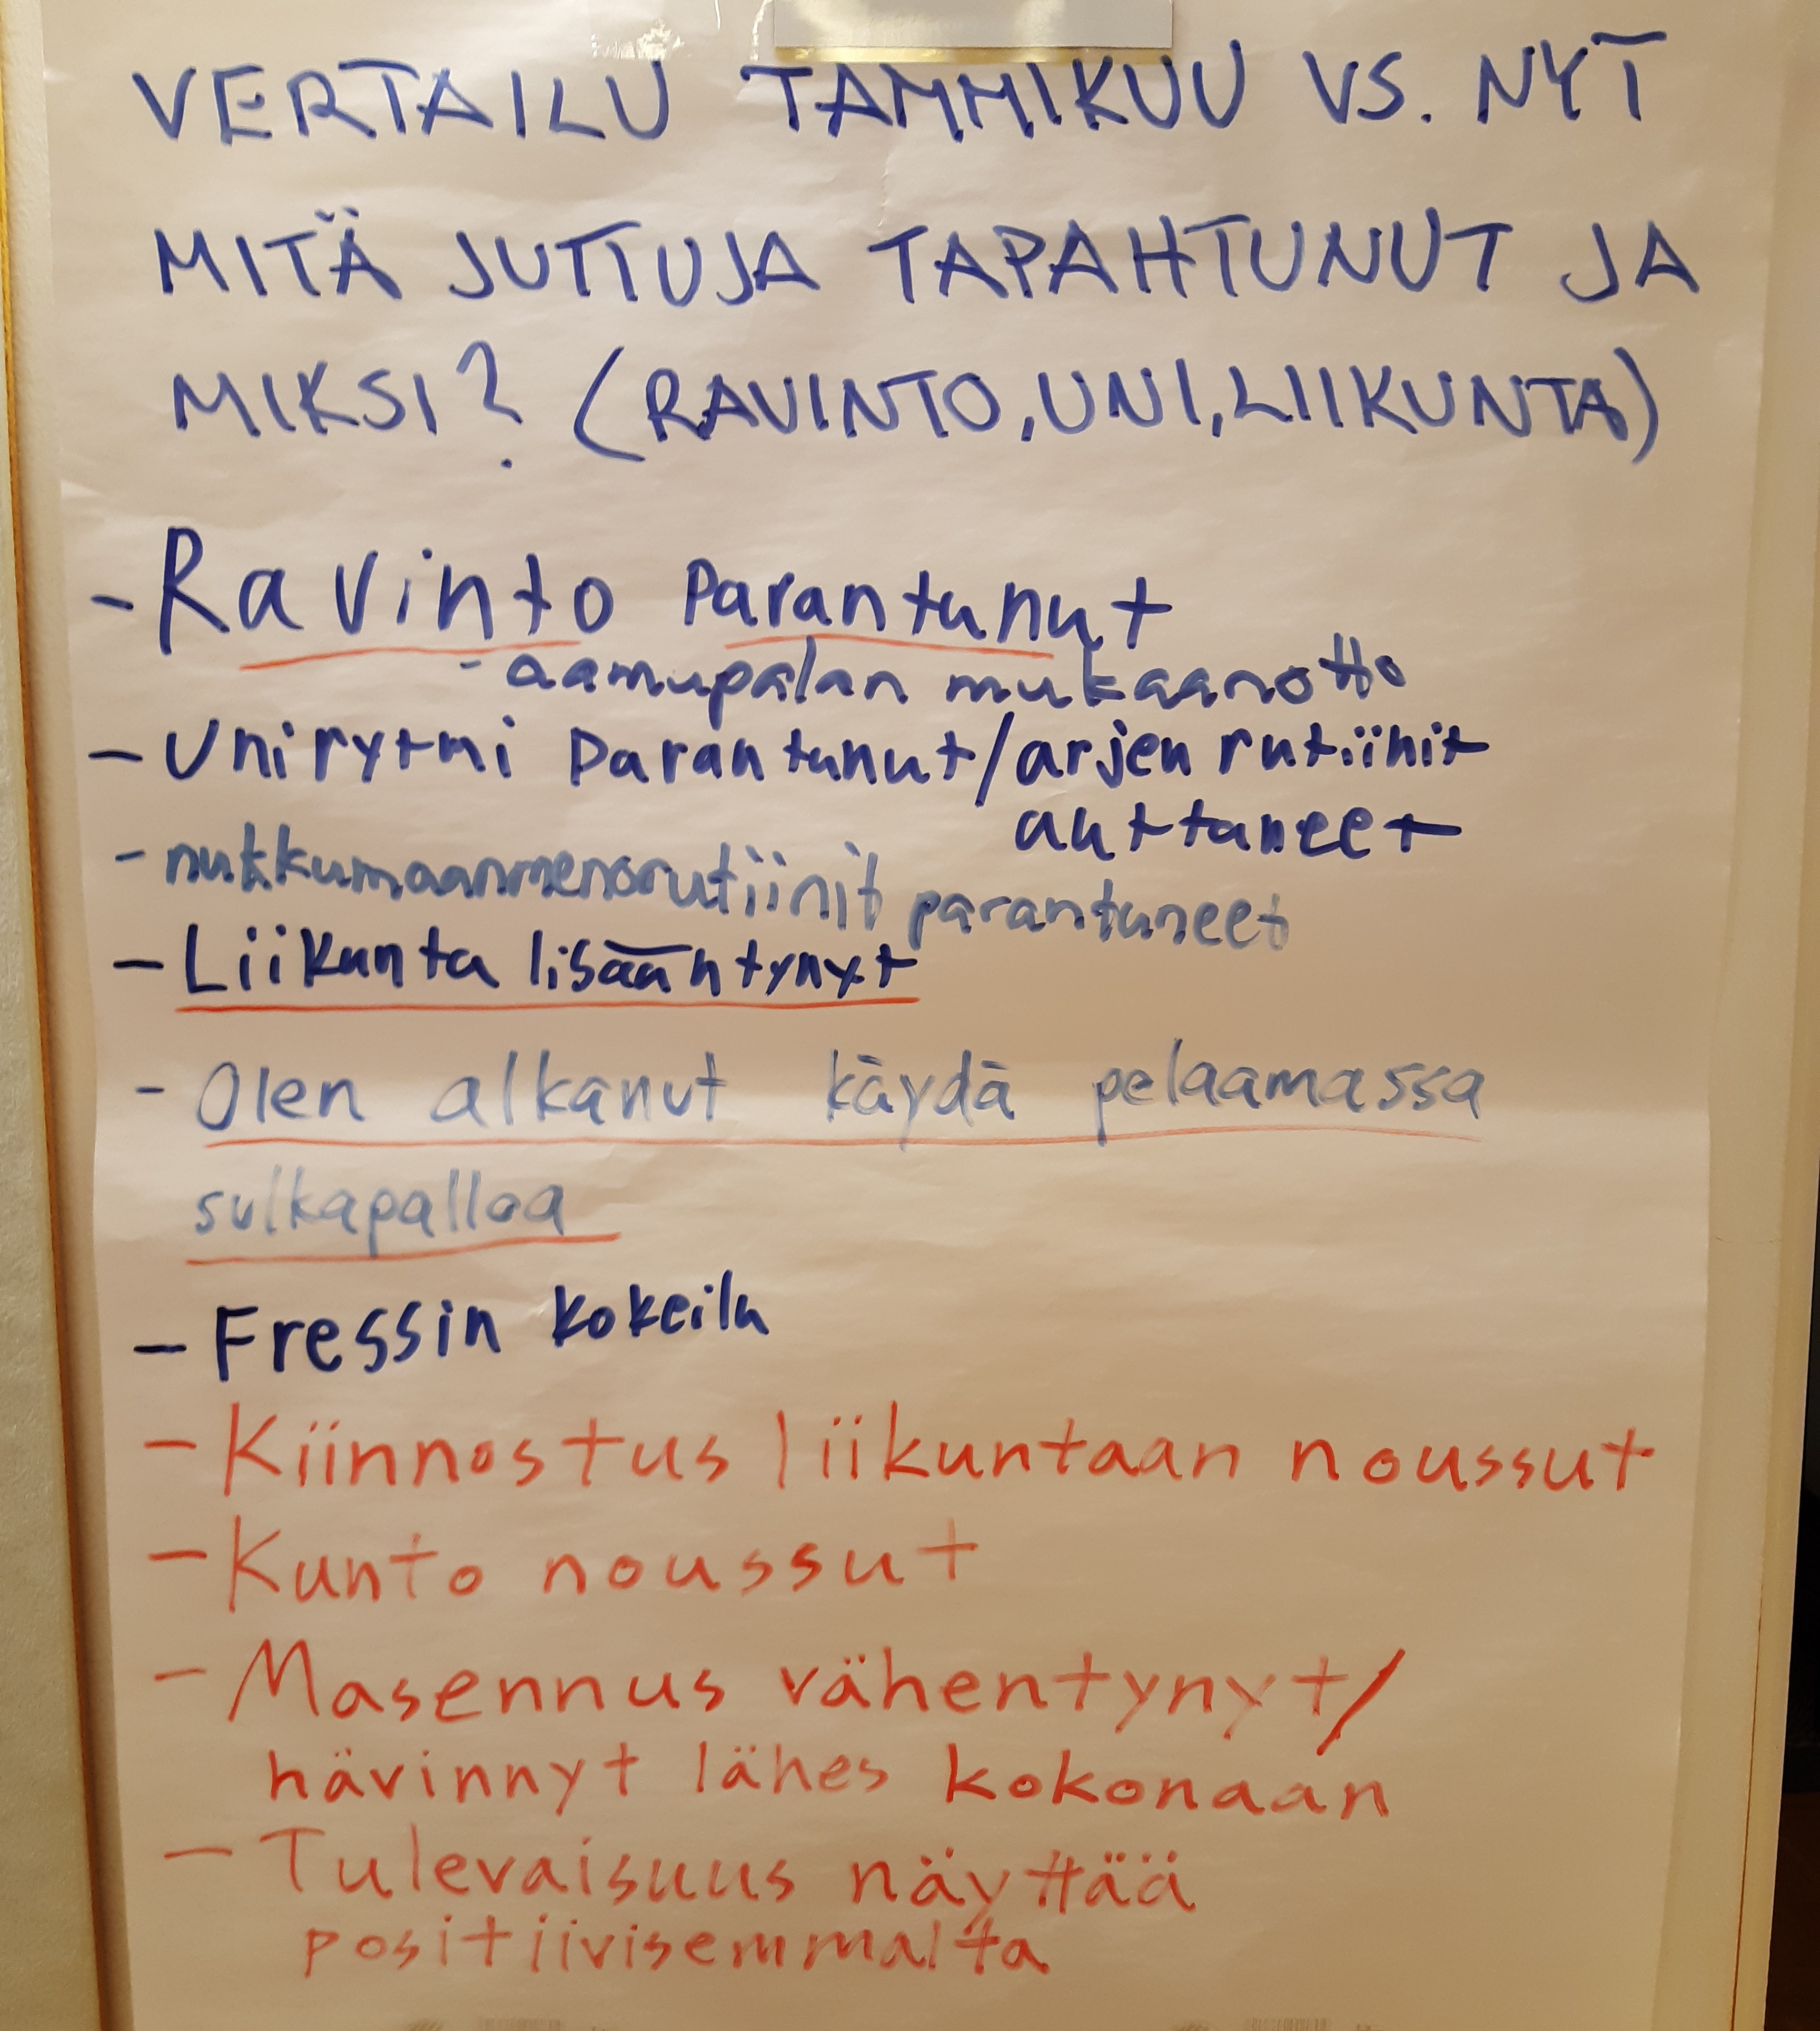 VERTAILU TAMMIKUU VS. NYT
MITÄ JUTTUJA TAPAHTUNUT JA
MIKSI? (RAVINTO, UNI, LIIKUNTA)
- Ravinto Parantunut
- aamupalan mukaanotto
- Unirytmi parantunut/arjen rutiinit
auttaneet
- nukkumaanmenorutiinit parantuneet
- Liikunta lisääntynyt
- Olen alkanut käydä pelaamassa
sulkapalloa
- Fressin kokeilu
- Kiinnostus liikuntaan noussut
- Kunto noussut
- Masennus vähentynyt/
hävinnyt lähes kokonaan
- Tulevaisuus näyttää
positiivisemmalta